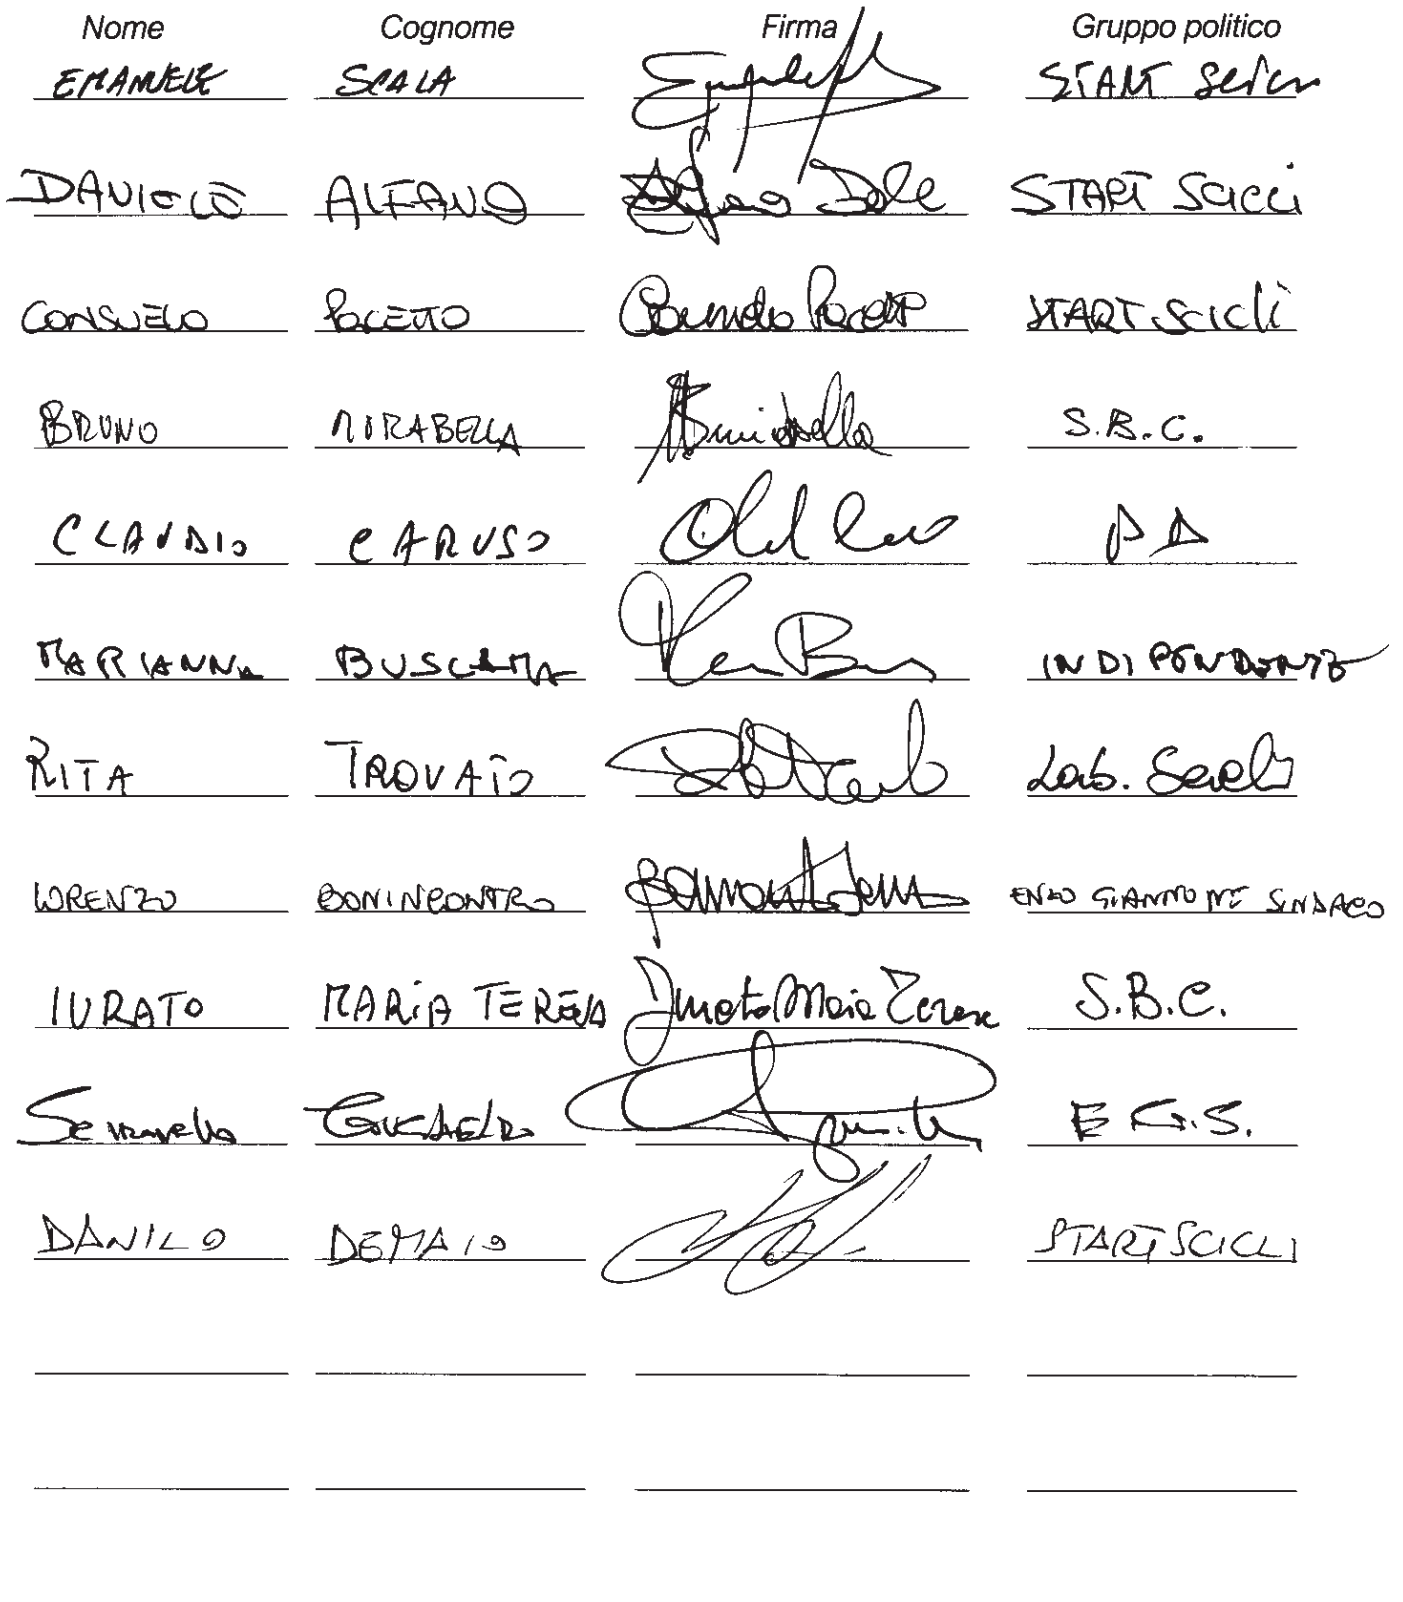 Nome Cognome Firma Gruppo politico
EMANUELE SCALA START Scicli
DANIELE ALFANO Alfano START Scicli
CONSUELO PACETTO Consuelo Pacetto START Scicli
BRUNO MIRABELLA Mirabella S.B.C.
CLAUDIO CARUSO PD
MARIANNA BUSCEMA INDIPENDENTE
RITA TROVATO Lab. Scicli
LORENZO BONINCONTRO ENZO GIANNONE SINDACO
IURATO MARIA TERESA Iurato Maria Teresa S.B.C.
E G.S.
DANILO DEMAIO START SCICLI